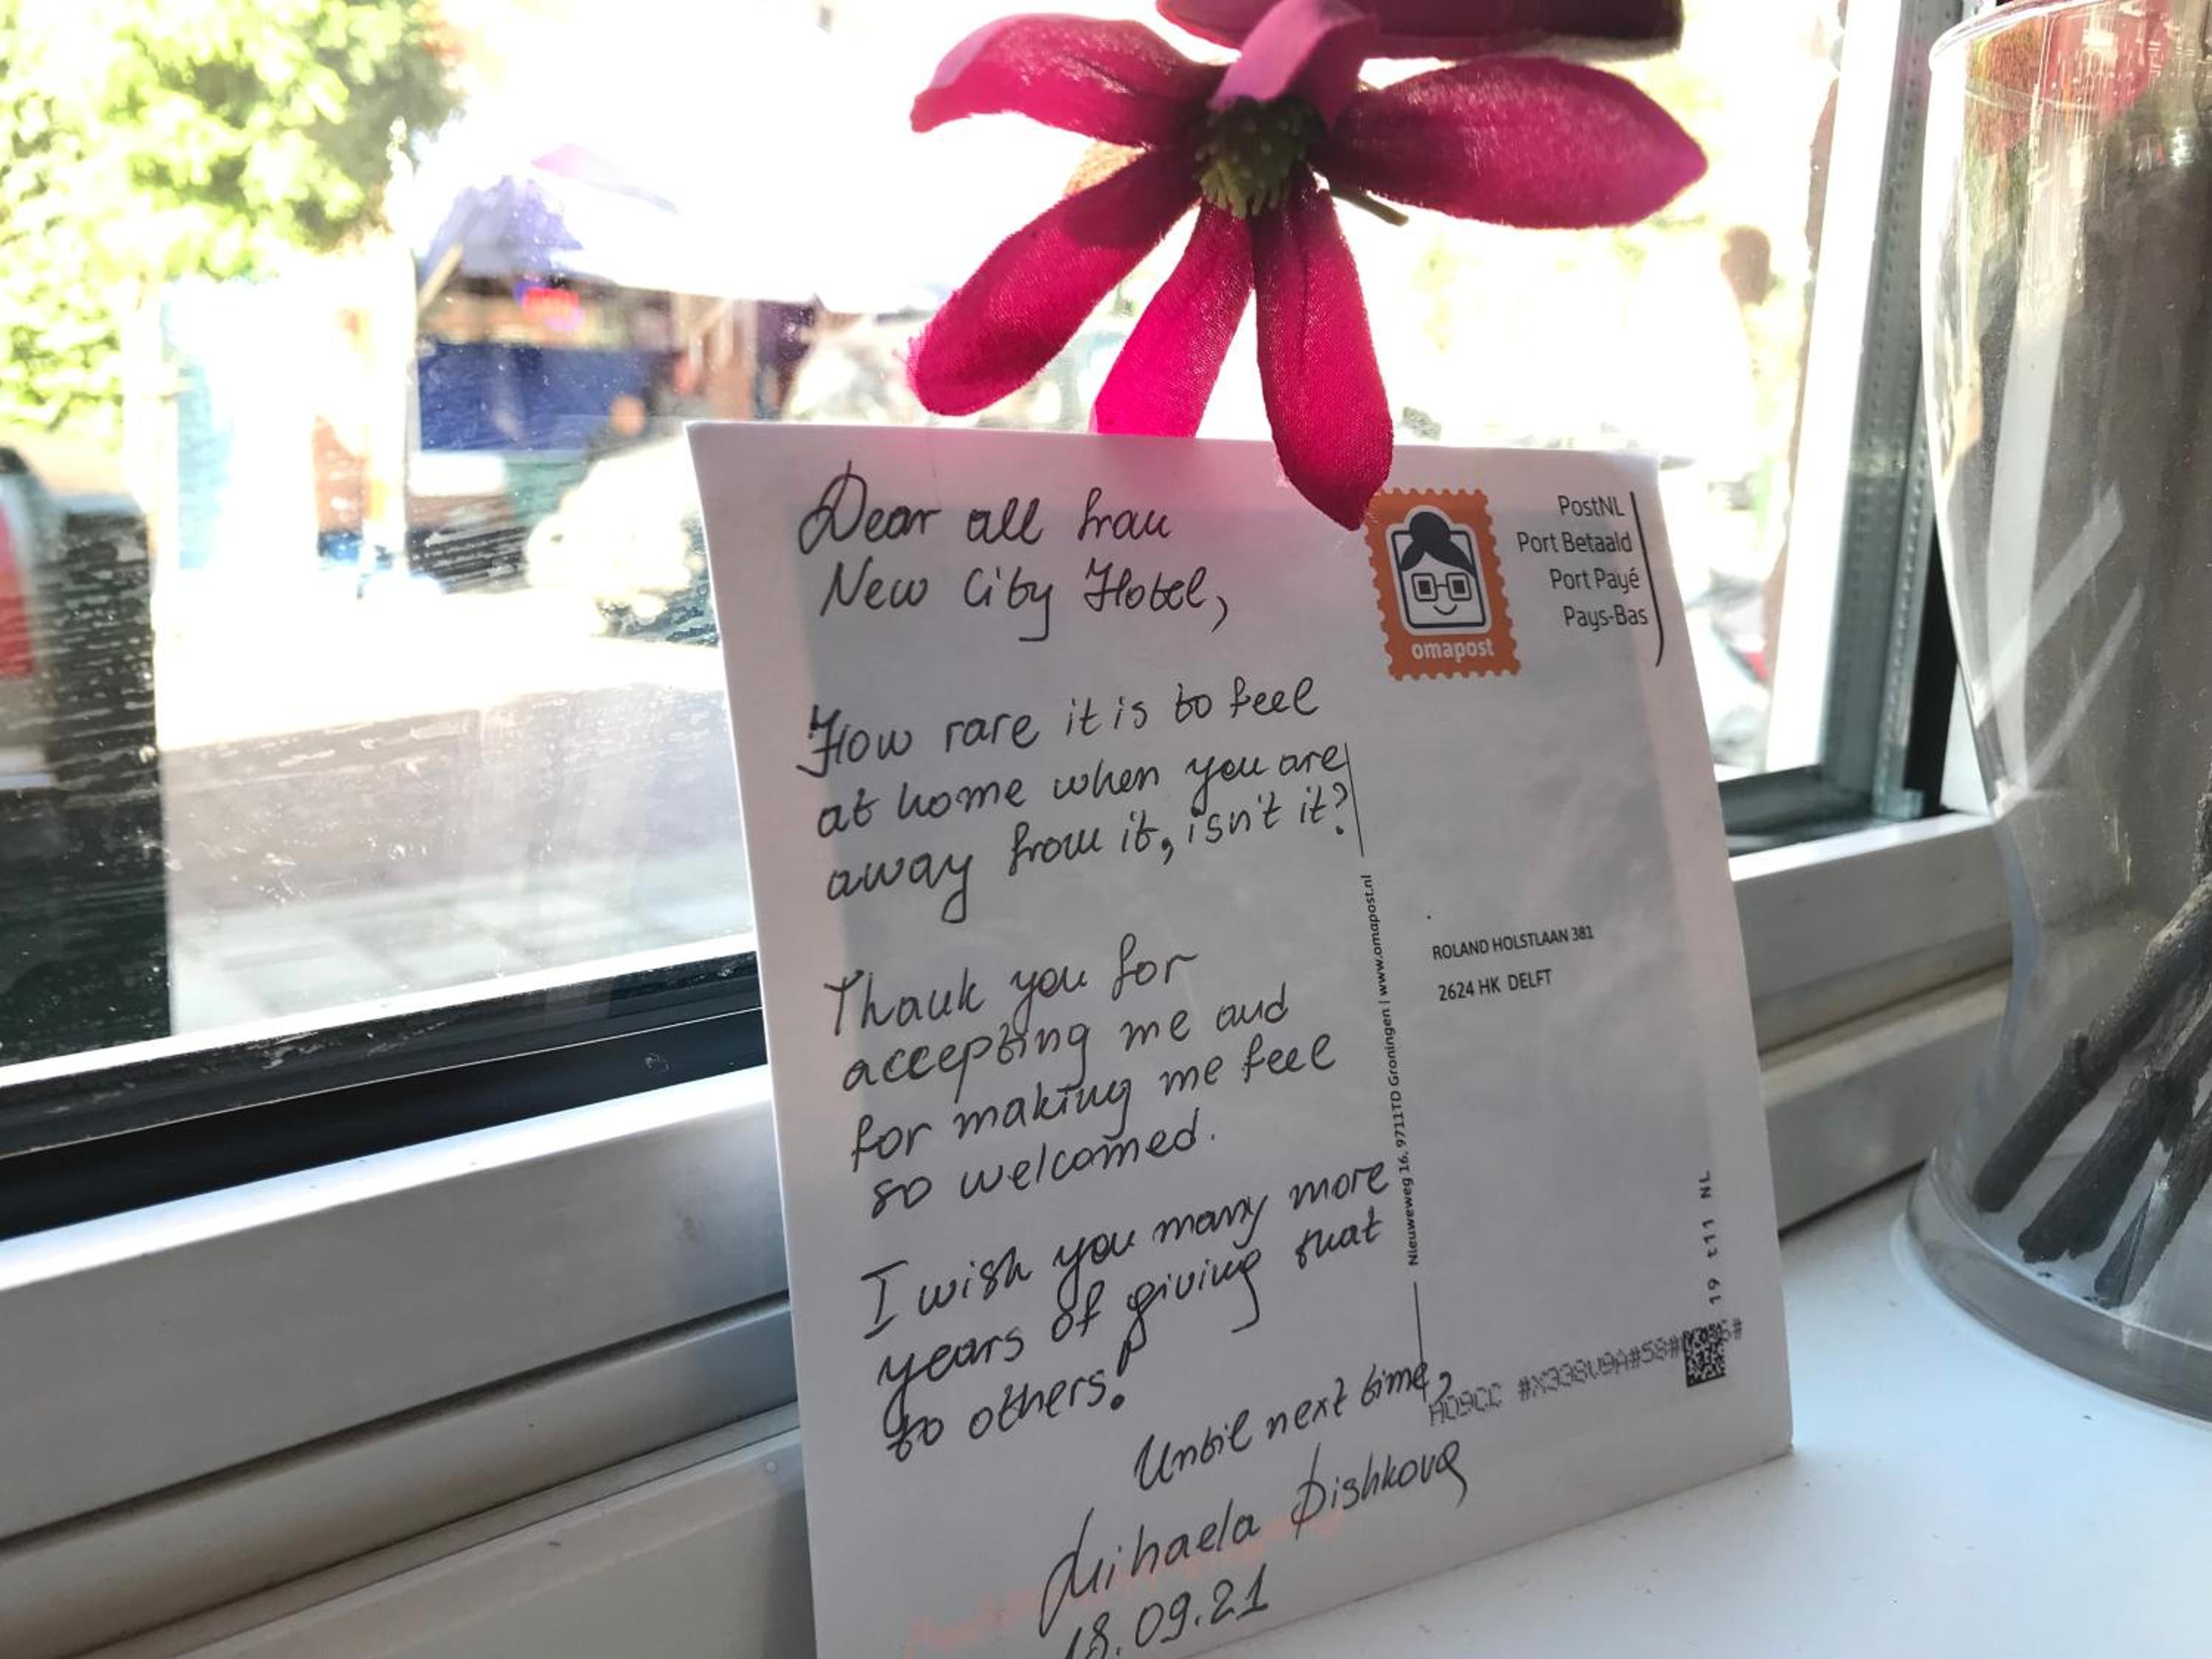 Dear all from
New City Hotel,
How rare it is to feel
at home when you are
away from it, isn't it?
Thank you for
accepting me and
for making me feel
so welcomed.
I wish you many more
years of giving that
to others!
Until next time,
Mihaela Dishkova
18.09.21
omapost
PostNL
Port Betaald
Port Payé
Pays-Bas
Nieuweweg 16, 9711TD Groningen | www.omapost.nl
ROLAND HOLSTLAAN 381
2624 HK DELFT
19 t11 NL